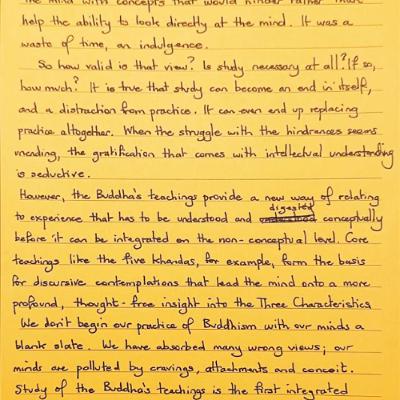 the mind with concepts that would hinder rather than
help the ability to look directly at the mind. It was a
waste of time, an indulgence.
So how valid is that view? Is study necessary at all? If so,
how much? It is true that study can become an end in itself,
and a distraction from practice. It can even end up replacing
practice altogether. When the struggle with the hindrances seems
unending, the gratification that comes with intellectual understanding
is seductive.
However, the Buddha's teachings provide a new way of relating
to experience that has to be understood and digested conceptually
before it can be integrated on the non-conceptual level. Core
teachings like the five khandas, for example, form the basis
for discursive contemplations that lead the mind onto a more
profound, thought-free insight into the Three Characteristics
We don't begin our practice of Buddhism with our minds a
blank slate. We have absorbed many wrong views; our
minds are polluted by cravings, attachments and conceit.
Study of the Buddha's teachings is the first integrated